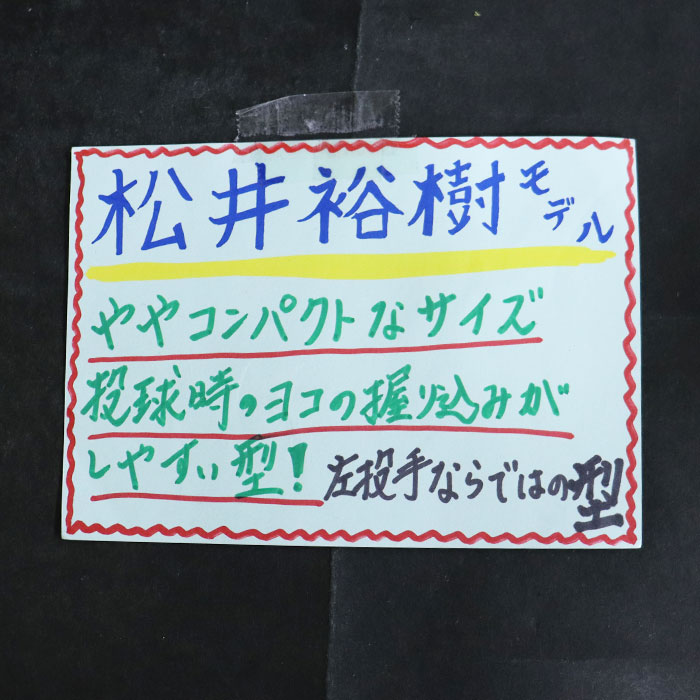 松井裕樹モデル
ややコンパクトなサイズ
投球時のヨコの握り込みが
しやすい型！左投手ならではの型